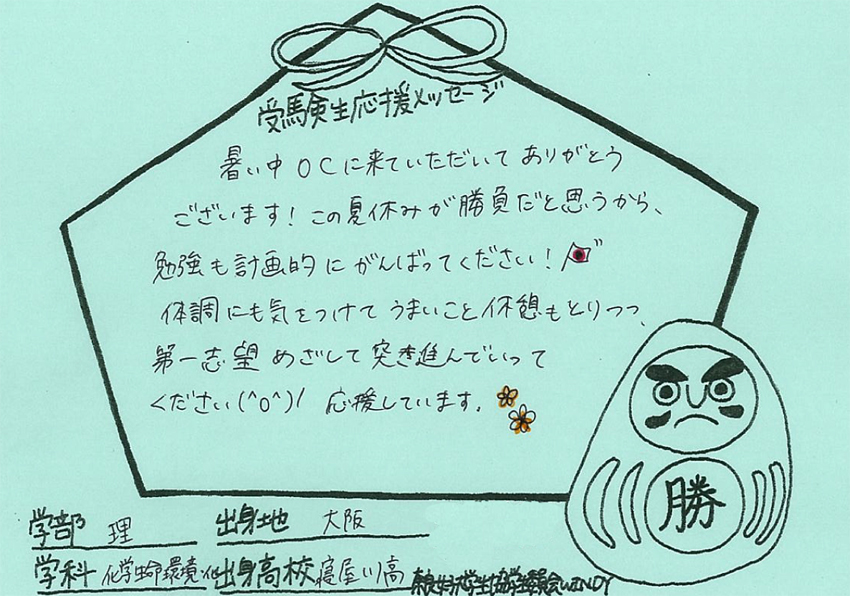 受験生応援メッセージ
暑い中OCに来ていただいてありがとう
ございます!この夏休みが勝負だと思うから、
勉強も計画的にがんばってください!
体調にも気をつけてうまいこと休憩もとりつつ、
第一志望めざして突き進んでいって
ください(^o^)/ 応援しています。
勝
学部 理 出身地 大阪
学科 化学生命環境 出身高校 寝屋川高
奈良女子大学生協学生委員会WINDY